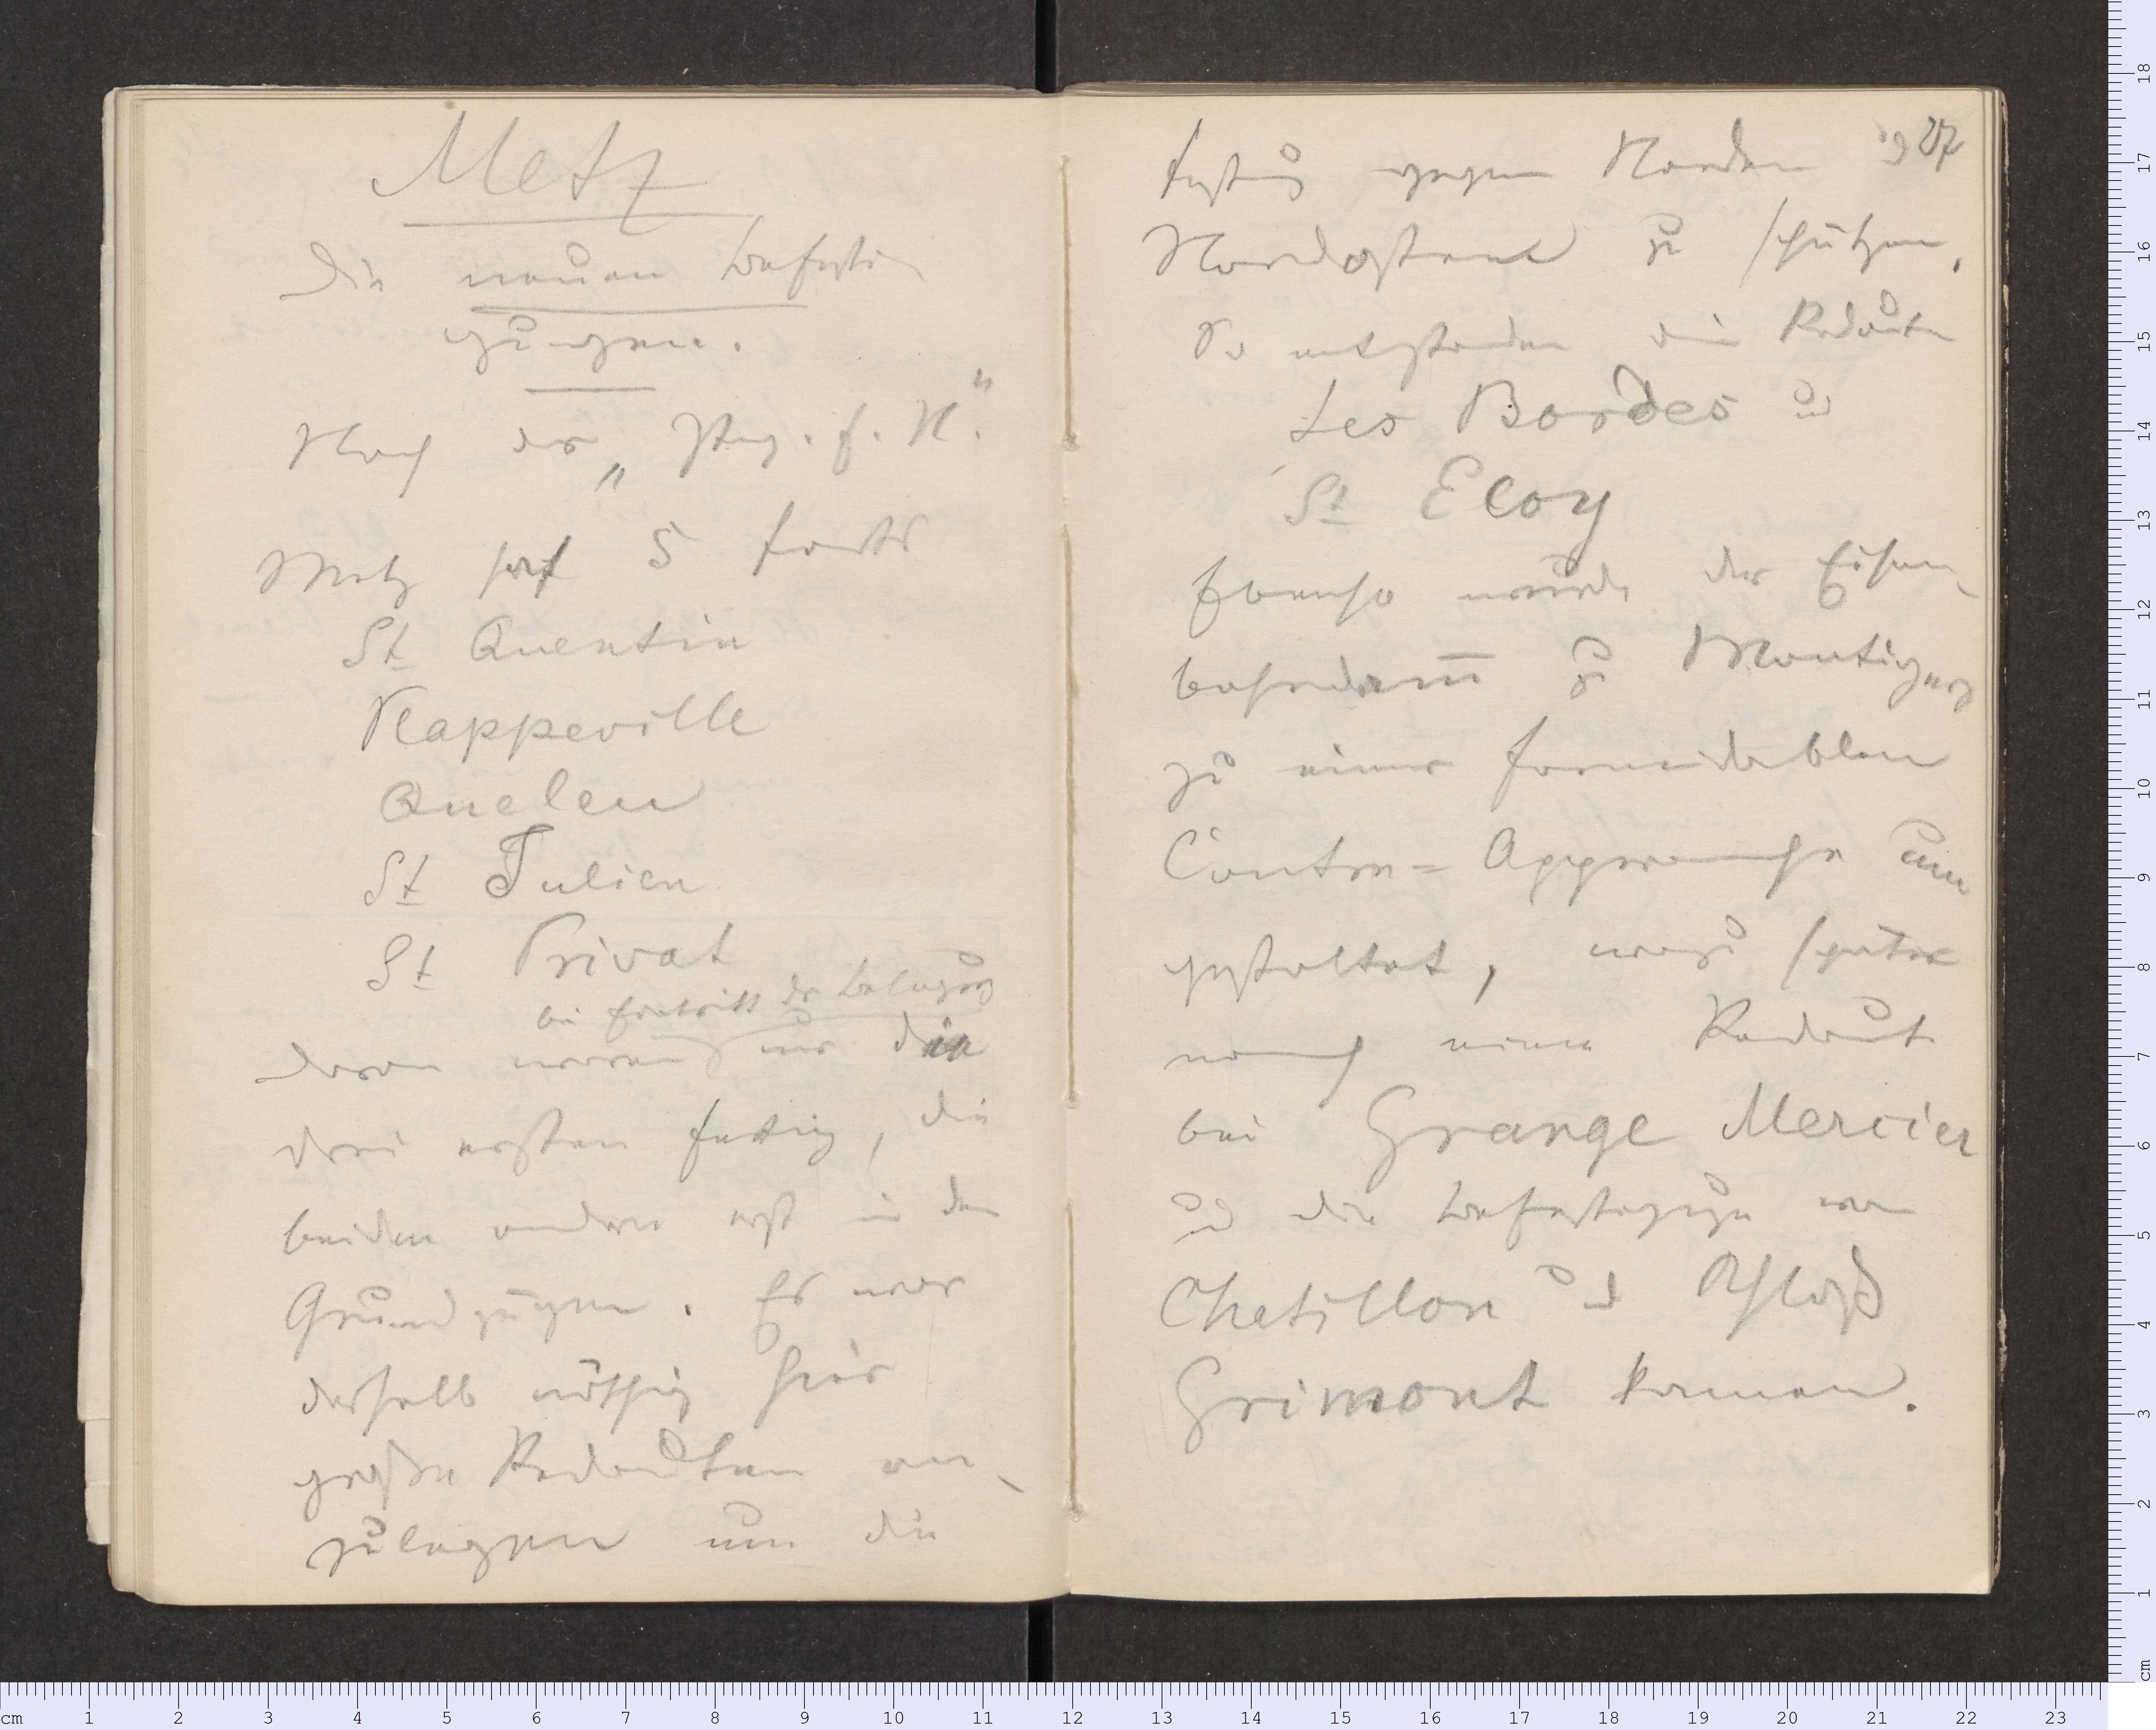 Metz
Die neuen Befesti-
gungen.
Nach der „Ztg. f. N."
Metz hat 5 Forts
St Quentin
Plappeville
Quelen
St Julien
St Privat
bei Eintritt der Belagrg
Davon waren nur die
drei ersten fertig, die
beiden andern erst in den
Grundzügen. Es war
deshalb nöthig hier
große Redouten an-
zulegen um die
27
Festung gegen Norden
Nordosten zu schützen.
So entstanden die Redouten
Les Bordes und
St Eloy
Ebenso wurde der Eisen-
bahndam̅ zu Montigny
zu einer formidablen
Contre=Approche um
gestaltet, wozu später
noch eine Redoute
bei Grange Mercier
und die Befestigungen von
Chatillon und Schloß
Grimont kamen.